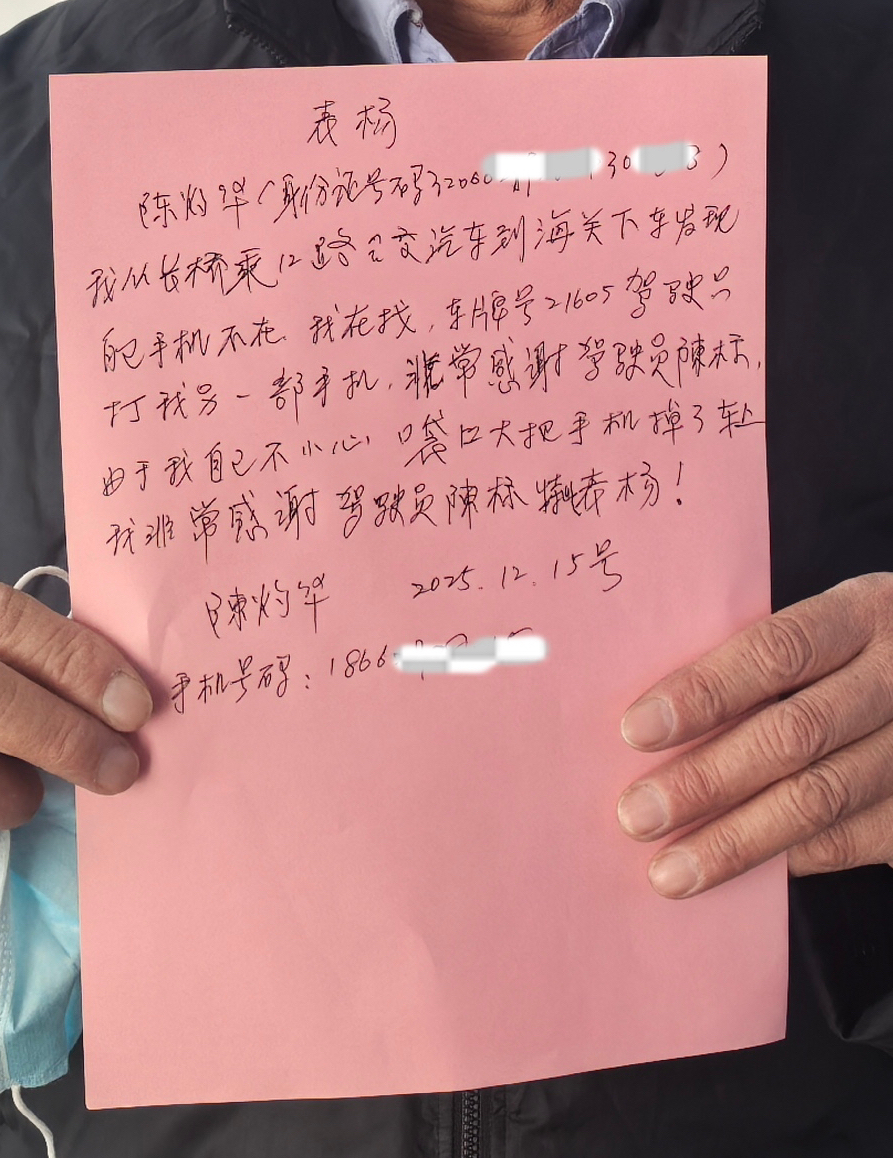 表杨
陈灼华(身份证号码32060 30 3)
我从长桥乘12路公交汽车到海关下车发现
自已手机不在.我在找,车牌号21605驾驶员
打我另一部手机,非常感谢驾驶员陳标,
由于我自己不小心,口袋口大把手机掉了车上
我非常感谢驾驶员陳标 特此表杨!
陳灼华 2025.12.15号
手机号码:1866